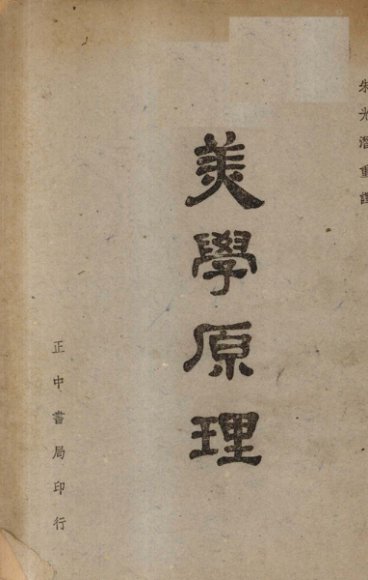 朱光潛重譯
美學原理
正中書局印行